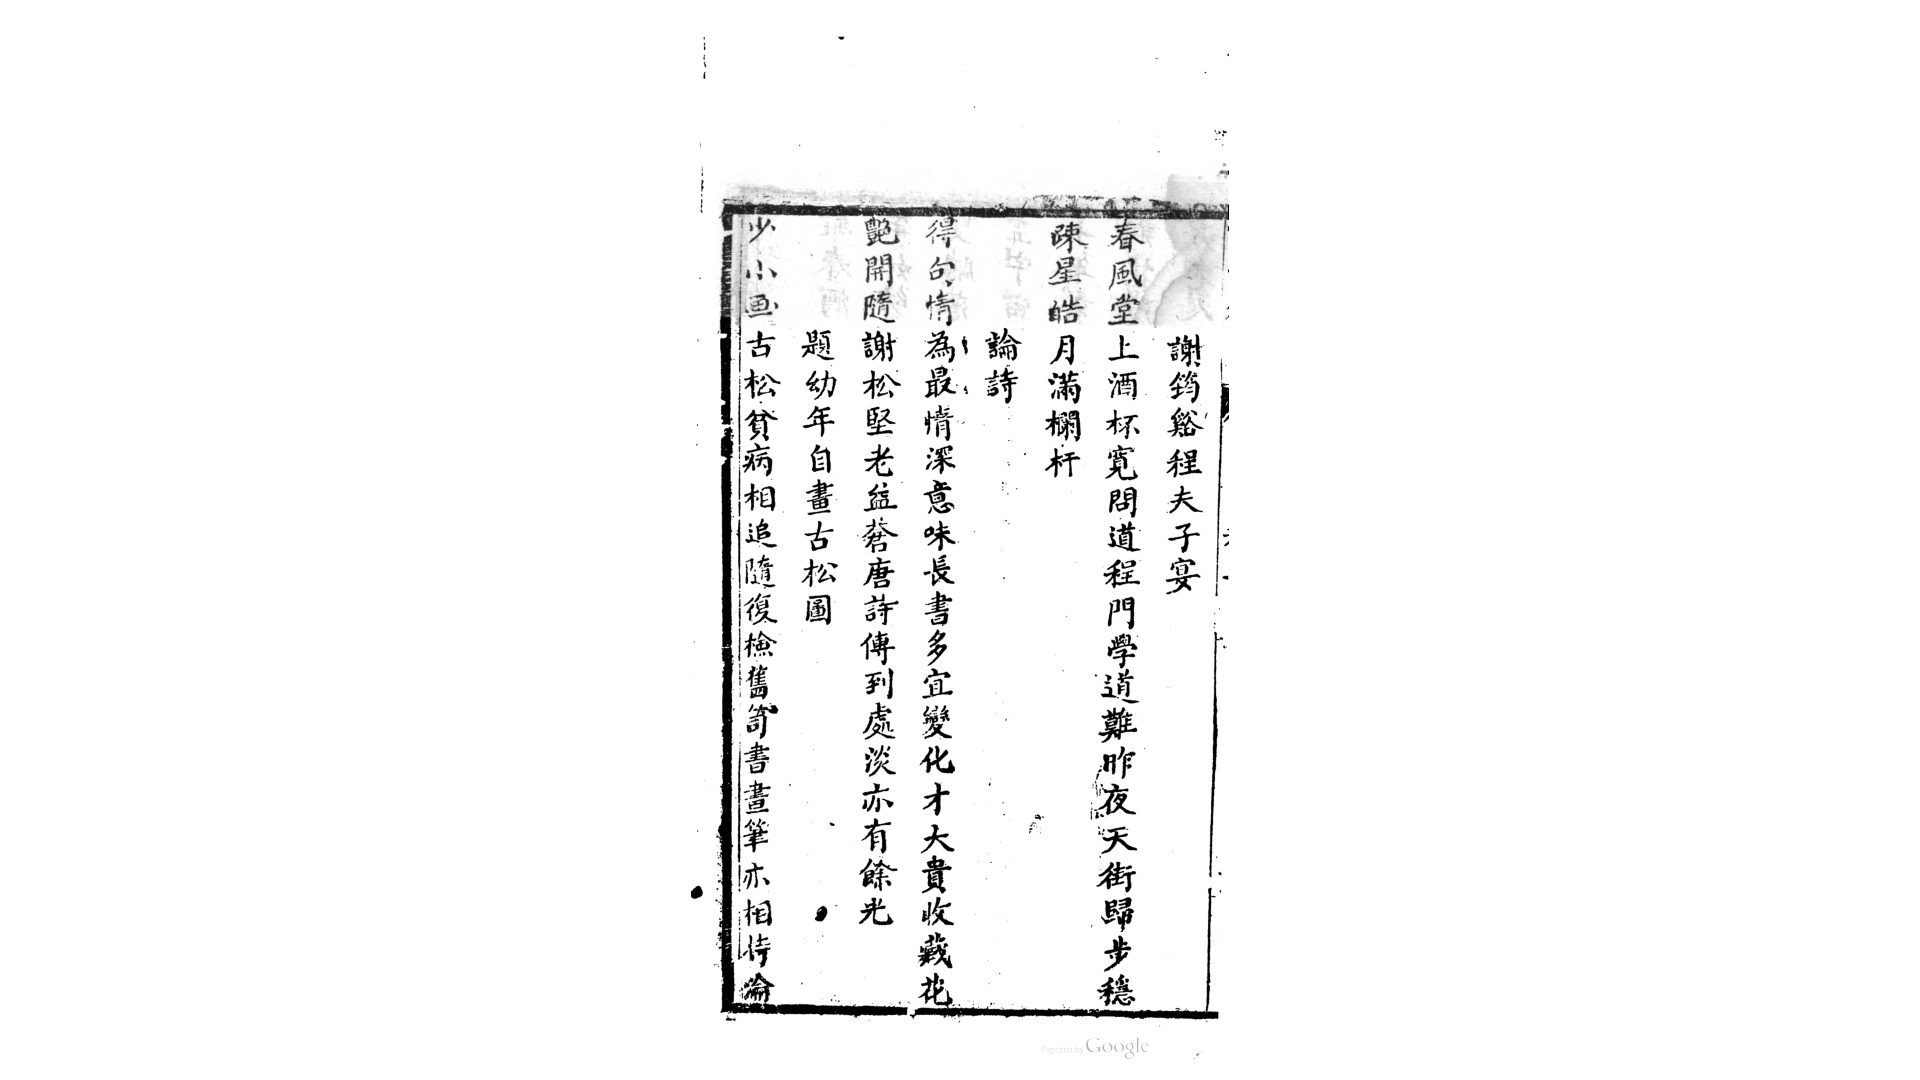 謝筠谿程夫子宴
春風堂上酒杯寬問道程門學道難昨夜天街歸步穩
疎星皓月滿欄杆
論詩
得句情為最情深意味長書多宜變化才大貴收藏花
艷開隨謝松堅老益蒼唐詩傳到處淡亦有餘光
題幼年自畫古松圖
少小画古松貧病相追隨復檢舊笥書畫筆亦相恃淪
Digitized by Google